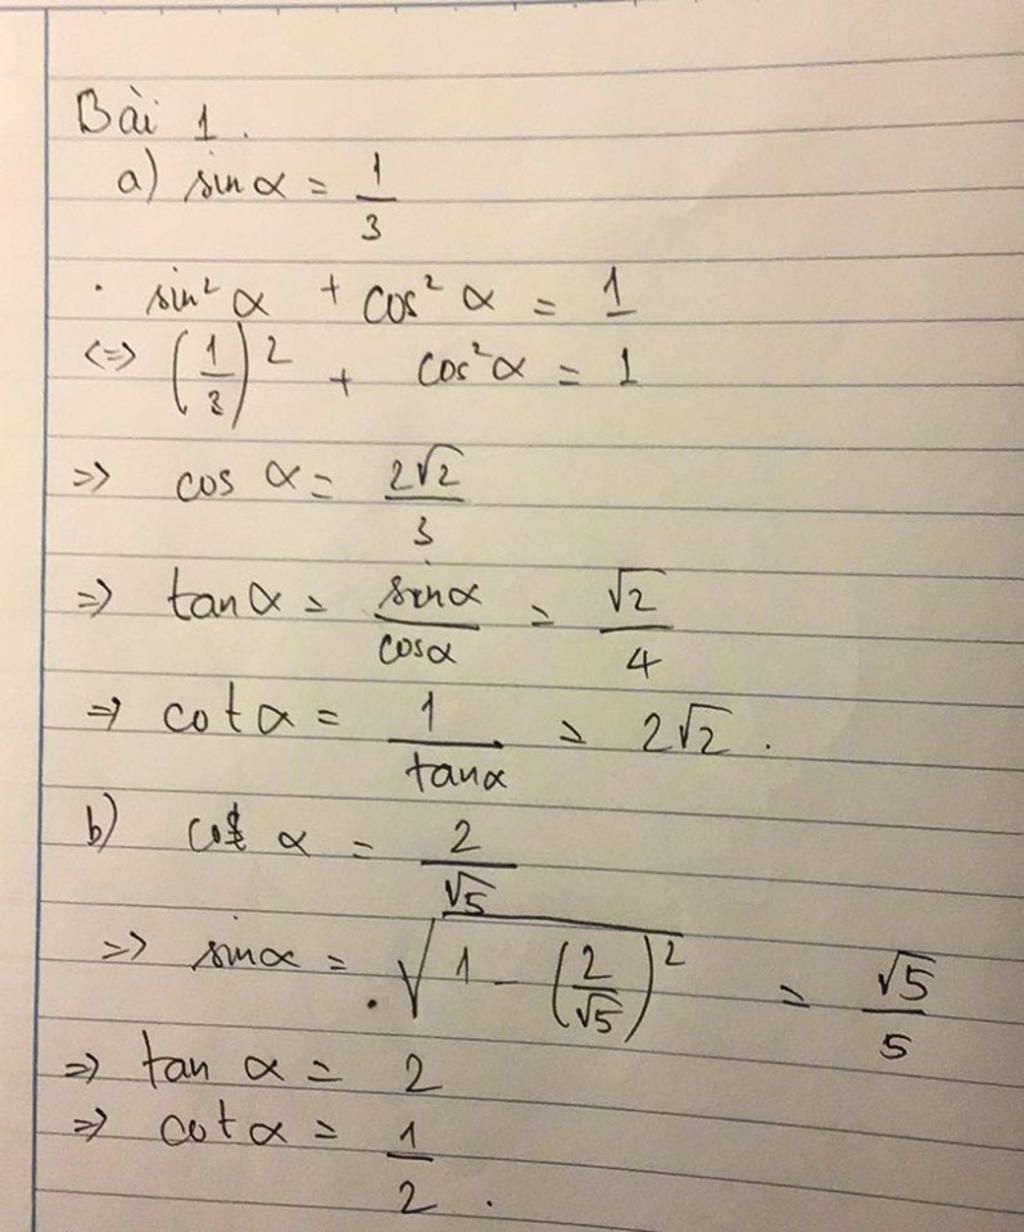 Bài 1.
a) sin α = 1/3
· sin² α + cos² α = 1
<=> (1/3)² + cos² α = 1
=> cos α = 2√2/3
=> tan α = sin α/cos α = √2/4
=> cot α = 1/tan α = 2√2.
b) cos α = 2/√5
=> sin α = √(1 - (2/√5)²) = √5/5
=> tan α = 2
=> cot α = 1/2.